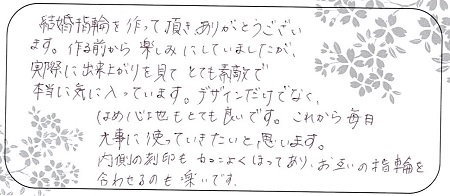 結婚指輪を作って頂きありがとうござい
ます。作る前から楽しみにしていましたが、
実際に出来上がりを見てとても素敵で
本当に気に入っています。デザインだけでなく、
はめ心地もとても良いです。これから毎日
大事に使っていきたいと思います。
内側の刻印もかっこよくほってあり、お互いの指輪を
合わせるのも楽いです。